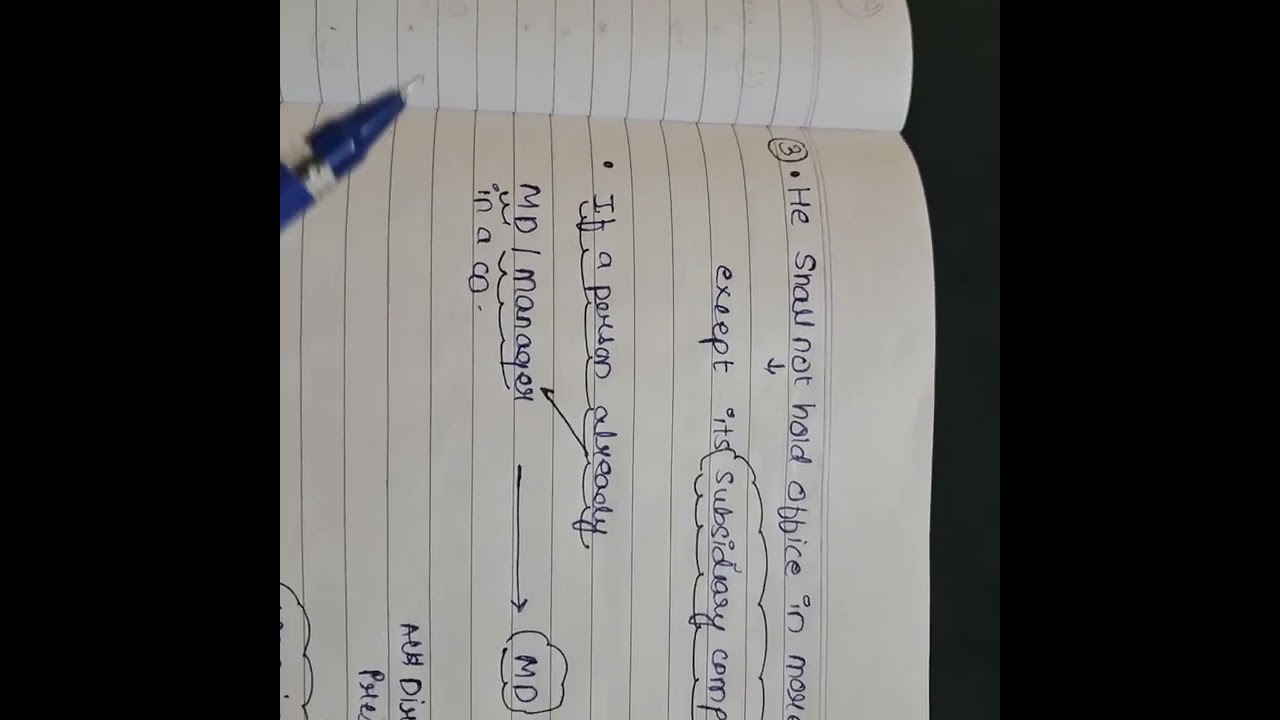 ③ • He Shall not hold office in more
except its subsidiary comp
• If a person already
MD / manager → MD
in a co.
All Dir
Pre